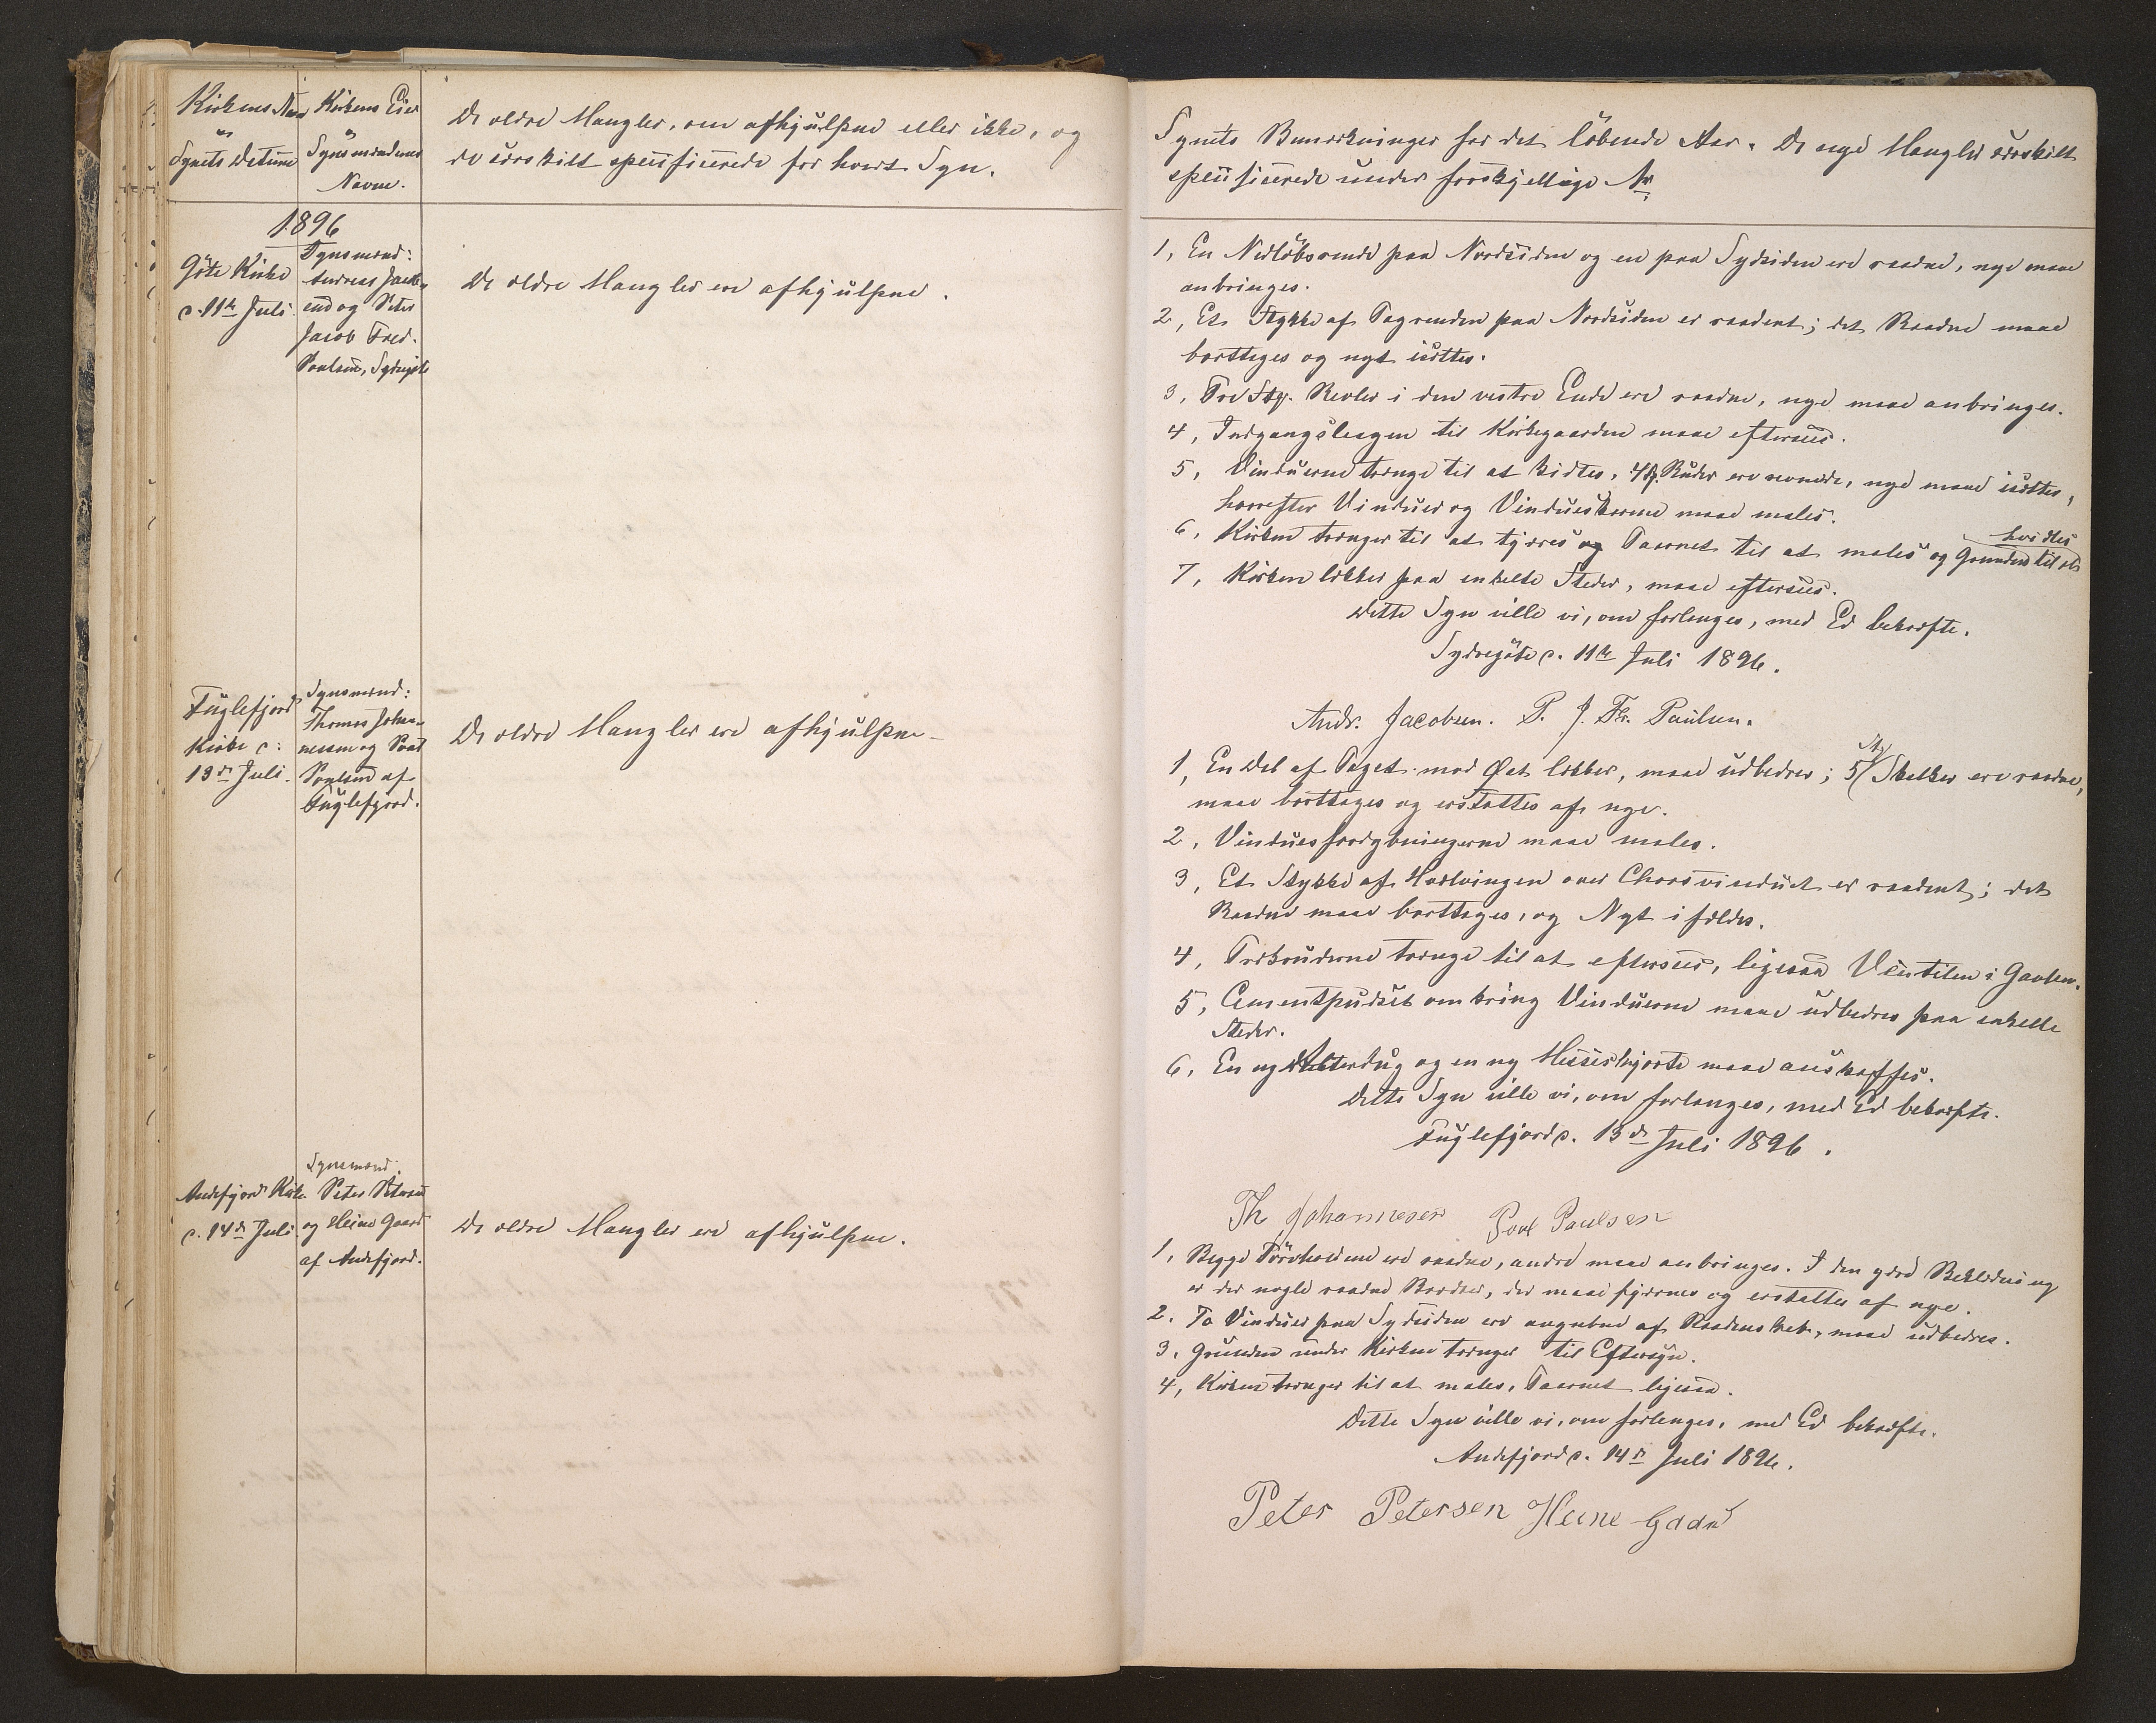 Kirkens Navn
og
Synets Datum
Kirkens Eier
Synsmændenes
Navne.
De ældre Mangler, om afhjulpne eller ikke, og
de særskilt specificerede for hvert Syn.
1896
Göte Kirke
d. 11te Juli.
Synsmænd:
Andreas Jacob-
sen og Peter
Jacob Fred.
Poulsen, Sydregöte
De ældre Mangler ere afhjulpne.
Fuglefjord
Kirke d:
13de Juli.
Synsmænd:
Thomas Johan-
nessen og Poul
Poulsen af
Fuglefjord.
De ældre Mangler ere afhjulpne
Andefjord Kirke
d. 14de Juli.
Synsmænd.
Peter Petersen
og Heine Gaard
af Andefjord.
De ældre Mangler ere afhjulpne.
Synets Bemærkninger for det löbende Aar. De nye Mangler særskilt
specificerede under forskjellige Nr
1, En Nedlöbsrende paa Nordsiden og en paa Sydsiden ere raadne, nye maae
anbringes.
2, Et Stykke af Tagrenden paa Nordsiden er raadent; det Raadne maae
borttages og nyt isættes.
3, Tre Stkr. Revler i den vestre Ende ere raadne, nye maae anbringes.
4, Indgangslaagen til Kirkegaarden maae efterseес.
5, Vinduerne trænge til at kittes, 4 Ruder ere revnede, nye maae isættes,
hvorefter Vinduer og Vindueskarme maae males.
6, Kirken trænger til at tjæres og Taarnet til at males og Grunden til at
hvidtes
7, Kirken lækker paa enkelte Steder, maae eftersees.
Dette Syn ville vi, om forlanges, med Ed bekræfte.
Sydregöte d. 11te Juli 1896.
Andr. Jacobsen. P. J. Fr. Paulsen.
1, En Del af Taget mod Øst lækker, maae udbedres; 5 Stkr Skelker ere raadne,
maae borttages og erstattes af nye.
2, Vinduesfordybningerne maae males.
3, Et Stykke af Hvælvingen over Chorsvinduet er raadent; det
Raadne maae borttages, og Nyt ifældes.
4, Trækruderne trænge til at eftersees, ligesaa Ventilen i Gavlen.
5, Cementpudset omkring Vinduerne maae udbedres paa enkelte
Steder.
6, En ny Alterdug og en ny Messeskjorte maae anskaffes.
Dette Syn ville vi, om forlanges, med Ed bekræfte.
Fuglefjord d. 13de Juli 1896.
Th Johannesen Poul Paulsen
1, Begge ere raadne, andre maae anbringes. I den ydre Beklædning
er der nogle raadne Brædder, der maae fjernes og erstattes af nye.
2. To Vinduer paa Sydsiden ere angrebne af Raadenskab, maae udbedres.
3. Grunden under Kirken trænger til Eftersyn.
4, Kirken trænger til at males, Taarnet ligesaa.
Dette Syn ville vi, om forlanges, med Ed bekræfte.
Andefjord d. 14de Juli 1896.
Peter Petersen Heine Gaard